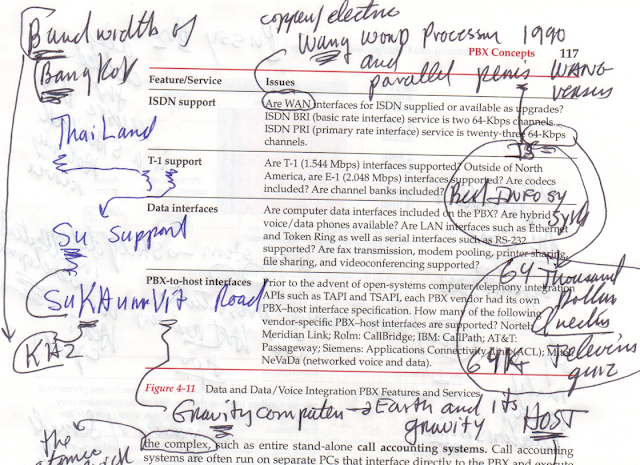 copper/electric
Bandwidth of
Wang word Processor 1990
PBX Concepts 117
Bangkok
and
parallel penis
WANG
versus
Feature/Service Issues
ISDN support
Are WAN interfaces for ISDN supplied or available as upgrades?
ISDN BRI (basic rate interface) service is two 64-Kbps channels.
ISDN PRI (primary rate interface) service is twenty-three 64-Kbps
channels.
Thailand
T-1 support
Are T-1 (1.544 Mbps) interfaces supported? Outside of North
America, are E-1 (2.048 Mbps) interfaces supported? Are codecs
included? Are channel banks included?
Data interfaces
Are computer data interfaces included on the PBX? Are hybrid
voice/data phones available? Are LAN interfaces such as Ethernet
and Token Ring as well as serial interfaces such as RS-232
supported? Are fax transmission, modem pooling, printer sharing,
file sharing, and videoconferencing supported?
Su Support
64 Thousand
Dollar
PBX-to-host interfaces
Prior to the advent of open-systems computer telephony integration
APIs such as TAPI and TSAPI, each PBX vendor had its own
PBX–host interface specification. How many of the following
vendor-specific PBX–host interfaces are supported? Nortel:
Meridian Link; Rolm: CallBridge; IBM: CallPath; AT&T:
Passageway; Siemens: Applications Connectivity Link (ACL);
NeVaDa (networked voice and data).
SuKHumVit Road
KHz
64K Television
quiz
Figure 4-11 Data and Data/Voice Integration PBX Features and Services
Gravity computer → Earth and its
gravity
HOST
the
the complex, such as entire stand-alone call accounting systems. Call accounting
systems are often run on separate PCs that interface directly to the PBX and